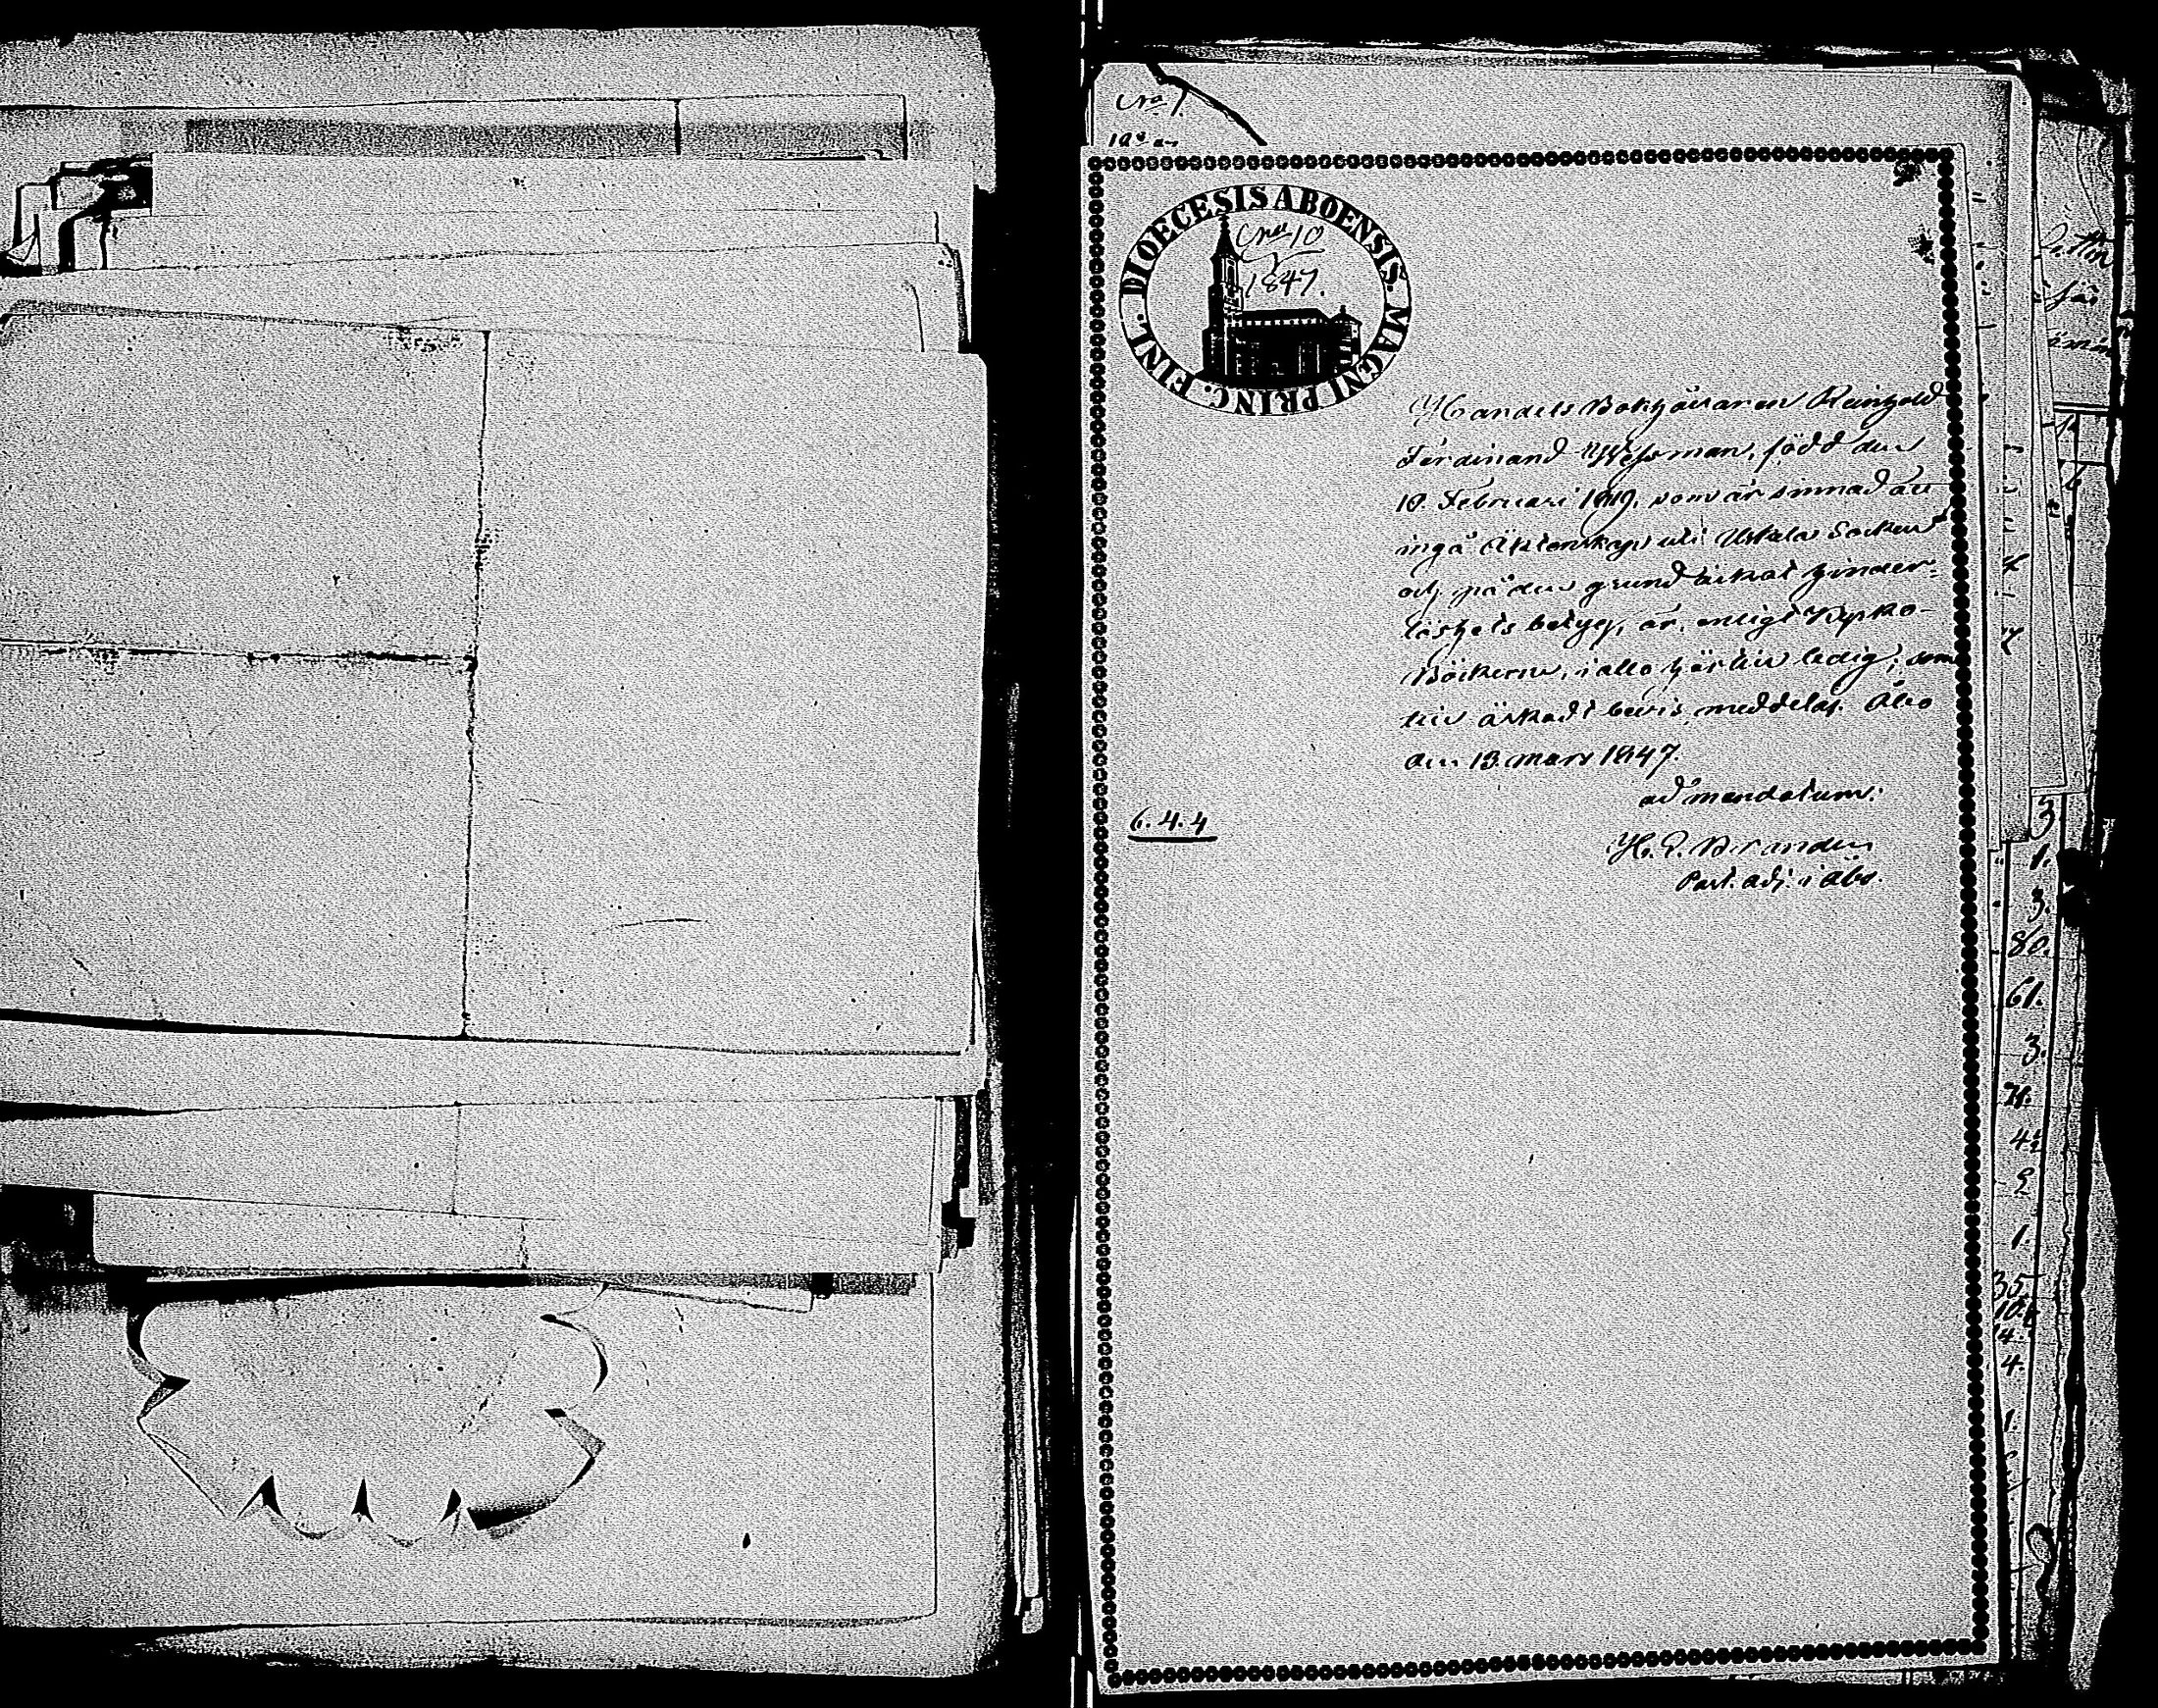 No 1.
DIOECESIS ABOENSIS. MAGNI PRINC. FINL.
No 10
1847.
Handels Bokhållaren Reinhold
Ferdinand man, född den
10. Februari 1819, som är sinnad att
ingå Äktenskap uti Uskela Socken
och på den grund äskat hinder-
löshets betyg, är, enligt Kyrko-
Böckerne, i allo härtill ledig; som
till äskadt bevis meddelas. Åbo
den 13 Mars 1847.
ad mandatum:
H. G. Biránder
Past. adj. i Åbo.
6.4.4
3
1.
3.
80.
61.
3.
4.
2
1.
35.
4.
4.
1.